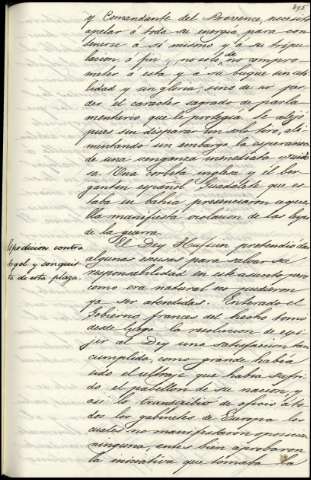 y Comandante del Provence, necesitó
apelar á toda su energia para con-
tenerse á si mismo y á su tripu-
lacion á fin, no solo de no compro-
meter á esta y á su buque sin uti-
lidad y sin gloria, sino de no per-
der el carácter sagrado de parla-
mentario que le protegia. Se alejó
pues sin disparar un solo tiro, ali-
mentando sin embargo la esperanza
de una venganza inmediata
Una Corbeta inglesa y el ber-
gantin español Guadalete que es-
taba en bahia presenciaron aque-
lla manifiesta violacion de las leyes
de la guerra.
El Dey Hussein, pretendió dar
algunas excusas para salvar su
responsabilidad en este asunto, pero
como era natural no pudieron
ya ser atendidas. Enterado el
Gobierno frances del hecho tomó
desde luego la resolucion de exi-
jir al Dey una satisfaccion tan
cumplida, como grande habia
sido el ultraje que habia sufri-
do el pabellon de su nacion, y
asi lo transcribió de oficio á to-
dos los gabinetes de Europa los
cuales no manifestaron oposicion
ninguna, antes bien aprobaron
la iniciativa que tomaba la
Espedicion contra
Argel y conquis-
ta de esta plaza.